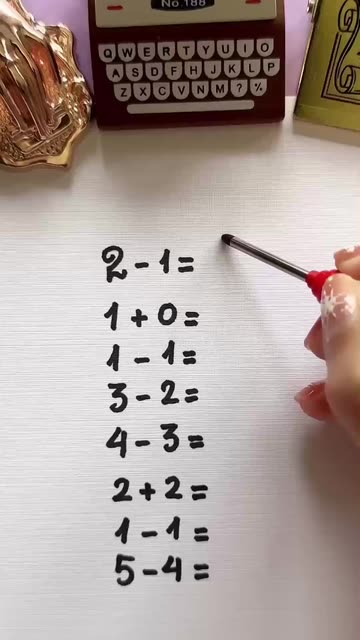 No.188
QWERTYUIO
ASDFHJKLP
ZXCVNM?%
2-1=
1+0=
1-1=
3-2=
4-3=
2+2=
1-1=
5-4=